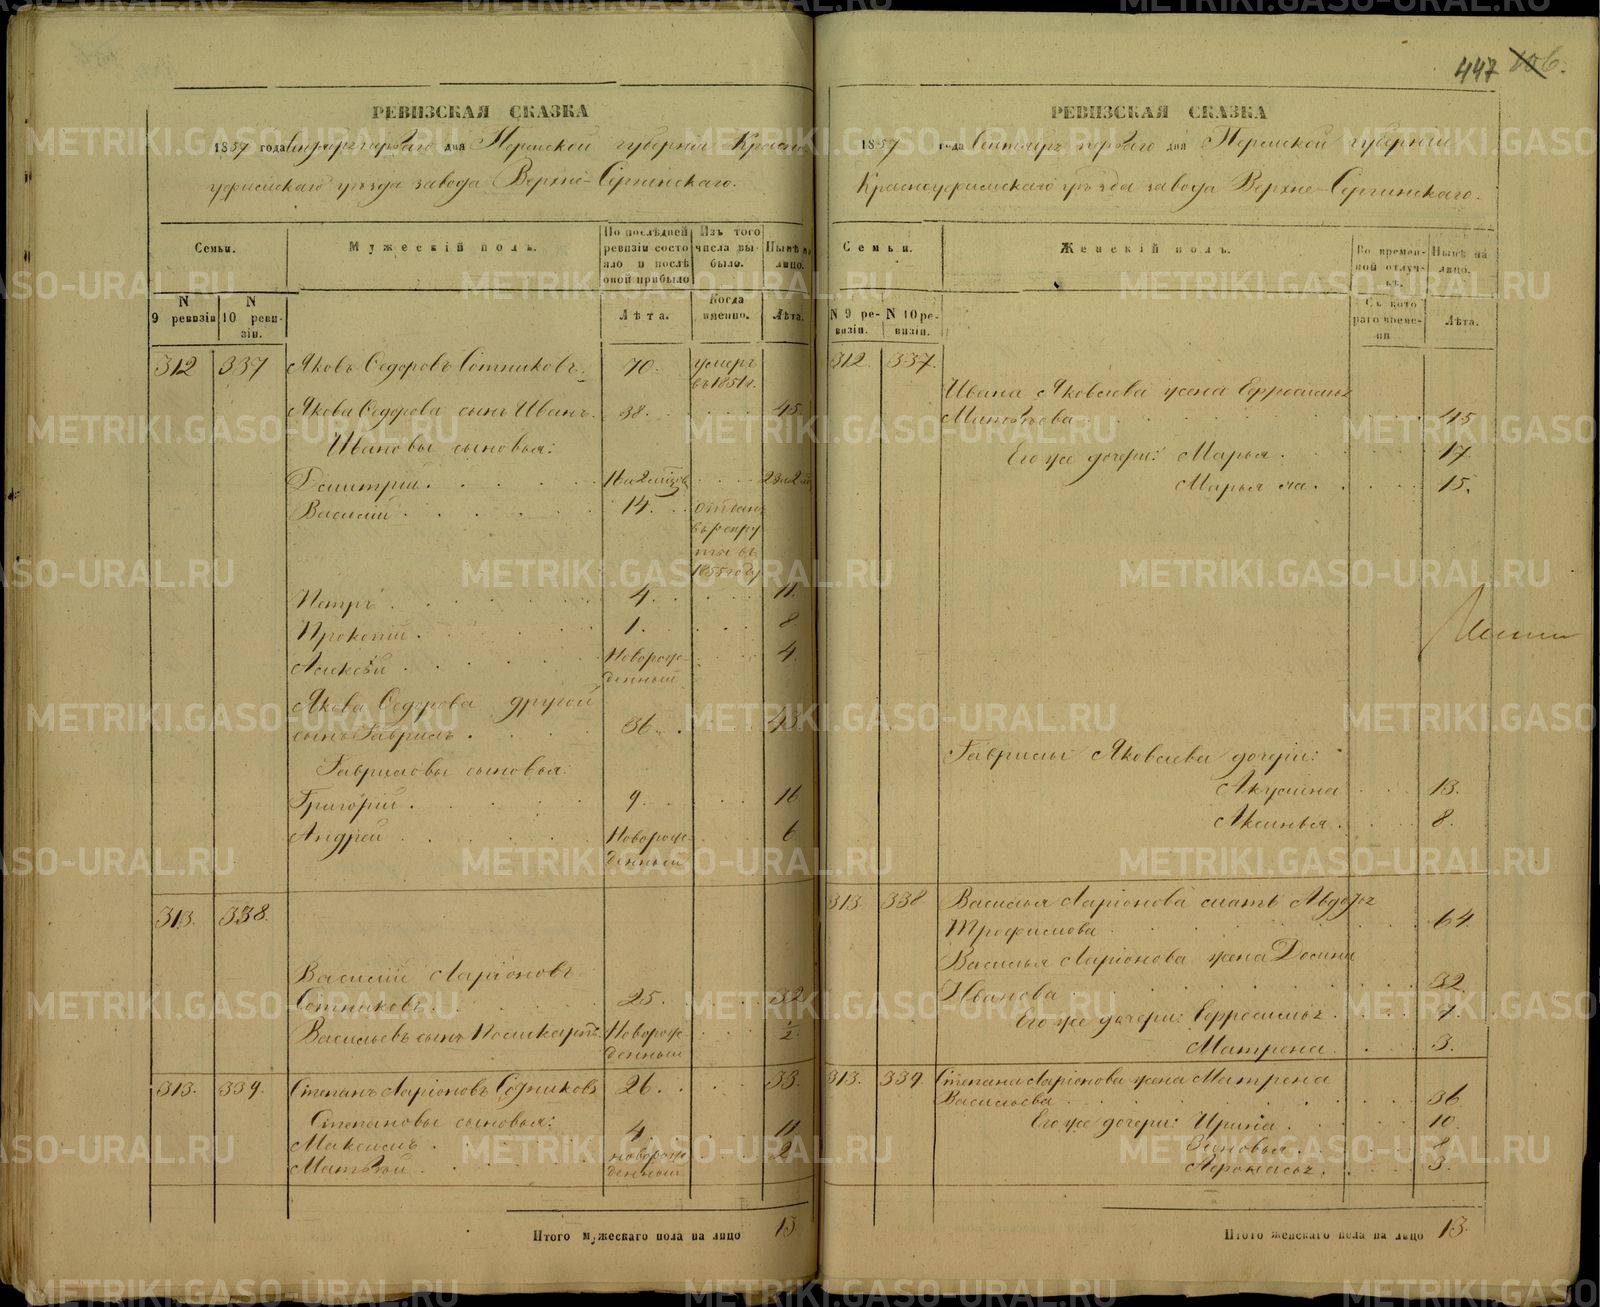 447 106.
РЕВИЗСКАЯ СКАЗКА
1857 года Сентября первого дня Пермской губернии Красно
уфимскаго уѣзда завода Верхне-Сергинскаго.
Семьи.
Мужескій полъ.
По послѣдней ревизіи состояло и послѣ оной прибыло
Изъ того числа выбыло.
Нынѣ на лицо.
N 9 ревизіи
N 10 ревизіи.
Лѣта.
Когда именно.
Лѣта.
312 337 Яковъ Ѳедоровъ Сотниковъ. 70. умеръ въ 1851 г.
Якова Ѳедорова сынъ Иванъ. 38. 45.
Ивановы сыновья:
Дмитрій.
Василій. 14. отданъ въ рекруты въ 1855 году
Петръ. 4. 11.
Прокопій. 1. 8.
Алексѣй. Новорожденный 4.
Якова Ѳедорова другой
сынъ Гаврилъ. 36. 43.
Гавриловы сыновья:
Григорій. 9. 16
Андрей. Новорожденный 6
313. 338.
Василій Ларіоновъ
Сотниковъ. 25. 32
Васильевъ сынъ Поликарпъ Новорожденный 1/2
313. 339. Степанъ Ларіоновъ Сотниковъ 26. 33.
Степановы сыновья:
Максимъ. 4. 11
Матвѣй. новорожденный 2
Итого мужескаго пола на лицо 13
РЕВИЗСКАЯ СКАЗКА
1857 года Сентября первого дня Пермской губерніи
Красноуфимскаго уѣзда завода Верхне-Сергинскаго.
Семьи.
Женскій полъ.
Во временной отлучкѣ.
Нынѣ на лицо.
N 9 ревизіи.
N 10 ревизіи.
Съ котораго времени
Лѣта.
312. 337.
Ивана Яковлева жена Ефросинья
Матвѣева. 45
Его же дочери: Марья. 17.
Марья 2я. 15.
Гаврилы Яковлева дочери:
Акулина 13.
Аксинья. 8.
313. 338 Василья Ларіонова мать Авдотья
Трофимова. 64.
Василья Ларіонова жена
Иванова. 32.
Его же дочери: Ефросинья. 7.
Матрена. 3.
313. 339. Степана Ларіонова жена Матрена
Васильева. 36
Его же дочери: Ирина. 10.
Зиновья. 8.
3.
Итого женскаго пола на лицо 13.
METRIKI.GASO-URAL.RU